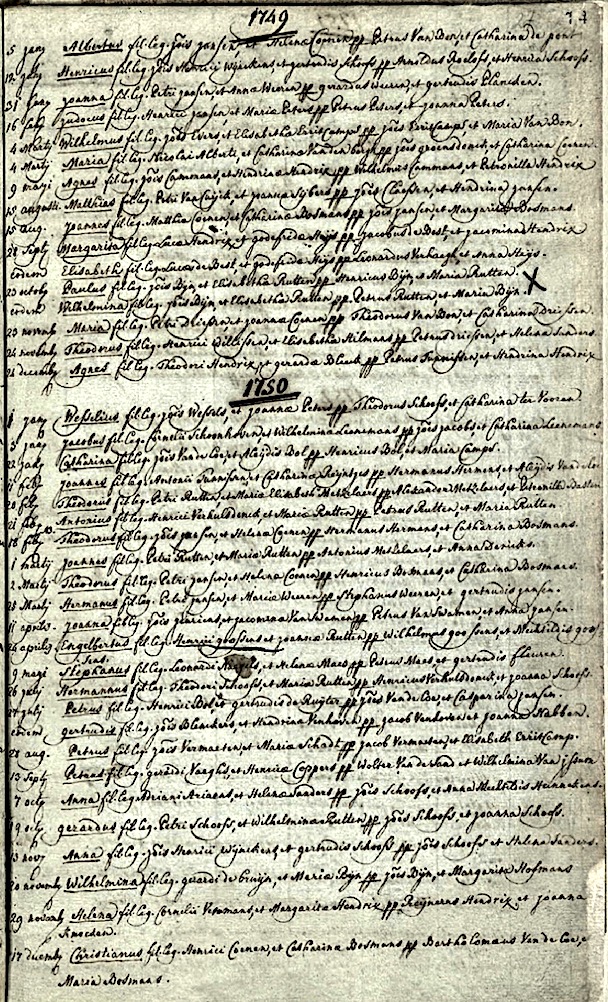 1749
5 janij Albertus fil. leg. jõis jansen, et Helenæ Coenen pp Petrus Van Bon, et Catharina de pont
Henricus fil. leg. jõis Henrici Wijnckens, et gertrudis Schoofs pp Arnoldus Roelofs, et Henrica Schoofs.
31 janij joanna fil. leg. Petri jansen, et Anna Weeren pp gerardus Weeren, et gertrudis Plancken.
16 febij judocus fil. leg. Henrici jansen, et Mariæ Peters pp Petrus Peters, et joanna Peters.
4 Martij Wilhelmus fil. leg. jõis Evers, et Elisabetha Erritcamps pp jõis Erritcamps, et Maria Van Bon.
4 Martij Maria fil. leg. Nicolai Alberti, et Catharinæ Vanden bergh pp jõis groensdonck, et Catharina Coenen.
9 maji Agnes fil. leg. jõis Cammans, et Hendrinæ Hendrix pp Wilhelmus Cammans, et Petronilla Hendrix
15 augusti Matthias fil. leg. Petri Van Cuijck, et joannæ Sijbers pp jõis Claessen, et Hendrina jansen.
15 aug. Joannes fil. leg. Matthiæ Coenen, et Catharinæ Bosmans pp jõis jansen, et Margarita Bosmans.
28 Septij Margarita fil. leg. Lucæ Hendrix, et godefridæ Heijs pp jacobus de Best, et jacomina Hendrix
eodem Elisabeth fil. leg. Lucæ de Best, et godefridæ Heijs pp Leonardus Verhaegh, et Anna Heijs.
23 octobij Paulus fil. leg. jõis Bijn, et Elisabetha Rutten pp Henricus Bijn, et Maria Rutten. X
eodem Wilhelmina fil. leg. jõis Bijn, et Elisabetha Rutten, pp Petrus Rutten, et Maria Bijn.
23 novemb Maria fil. leg. Petri Driessen, et joannæ Coenen pp Theodorus Van Bon, et Catharina Driessen.
24 novembij Theodorus fil. leg. Henrici Willissen, et Elisabetha Hilmans pp Petrus Driessen, et Helena Sanders.
21 decembij Agnes fil. leg. Theodori Hendrix, et gerardæ Bleeck pp Petrus Teunissen, et Hendrina Hendrix
1750
1 janij Wesselius fil. leg. jõis Wessels, et joannæ Peters pp Theodorus Schoofs, et Catharina ter Voozen.
5 janij jacobus fil. leg. Cornelii Schoonhoven, et Wilhelmina Leenemans pp jõis jacobs, et Catharina Leenemans
22 janij Catharina fil. leg. jõis Van de Loe, et Aleijdis Bol pp Henricus Bol, et Maria Camps.
joannes fil. leg. Antonii Teunissen, et Catharinæ Reijntjes pp Hermanus Hermens, et Aleijdis Van de Loe
20 febij Theodorus fil. leg. Petri Rutten, et Mariæ Elisabeth Metzelaers pp Alexander Metzelaers, et Petronilla
21 febij Antonius fil. leg. Henrici Verhulsdonck, et Mariæ Rutten pp Petrus Rutten, et Maria Rutten.
18 febij Theodorus fil. leg. jõis jansen, et Helena Coenen pp Hermanus Hermens, et Catharina Bosmans.
1 martij joannes fil. leg. Petri Rutten, et Mariæ Rutten pp Antonius Metzelaers, et Anna Dericks.
2 Martij Theodorus fil. leg. Petri jansen, et Helena Coenen pp Henricus Bosmans, et Catharina Bosmans.
28 Martij Hermanus fil. leg. Petri jansen, et Mariæ Weeren pp Stephanus Weeren, et gertrudis jansen.
11 aprilis joanna fil. leg. jõis et jacomina Van Swamen pp Petrus Van Swamen, et Anna jansen.
26 aprilis Engelbertus fil. leg. Henrici goossens, et joannæ Rutten pp Wilhelmus goossens, et Mechtildis goos
9 maij Stephanus fil. leg. Leonardi et Helenæ Maes pp Petrus Maes, et gertrudis fleuren.
26 julij Hermannus fil. leg. Theodori Schoofs, et Mariæ Rutten pp Henricus Verhulsdonck, et joanna Schoofs.
27 julij Petrus fil. leg. Henrici Bol, et gertrudis de Ruijter pp jõis Van de Loe, et Casparina jansen.
eodem gertrudis fil. leg. jõis Blenckers, et Hendrina Venhoven pp jacob Venhoven, et joanna Nabben.
27 aug. Petrus fil. leg. jõis Vermaeten, et Mariæ Schadt pp jacob Vermaeten, et Elisabeth Erritcamp.
13 Septij Petrus fil. leg. gerardi Vaeghs, et Henricæ Coppers pp Wolter Van de Sand, et Wilhelmina Van
7 octij Anna fil. leg. Adriani Arians, et Helenæ Sanders pp jõis Schoofs, et Anna Mechtildis Hennekens.
19 octij gerardus fil. leg. Petri Schoofs, et Wilhelminæ Rutten pp jõis Schoofs, et joanna Schoofs.
13 novij Anna fil. leg. jõis Henrici Wijnckens, et gertrudis Schoofs pp jõis Schoofs et Helena Sanders.
20 novemb Wilhelmina fil. leg. gerardi de bruijn, et Mariæ Bijn pp jõis Bijn, et Margarita Hofmans
29 novemb Helena fil. leg. Cornelii Vetemans, et Margarita Hendrix pp Reijnerus Hendrix et joanna
Knocken.
17 decemb Christianus fil. leg. Henrici Coenen, et Catharina Bosmans pp Bartholomæus Van de Loe, et
Maria Bosmans.